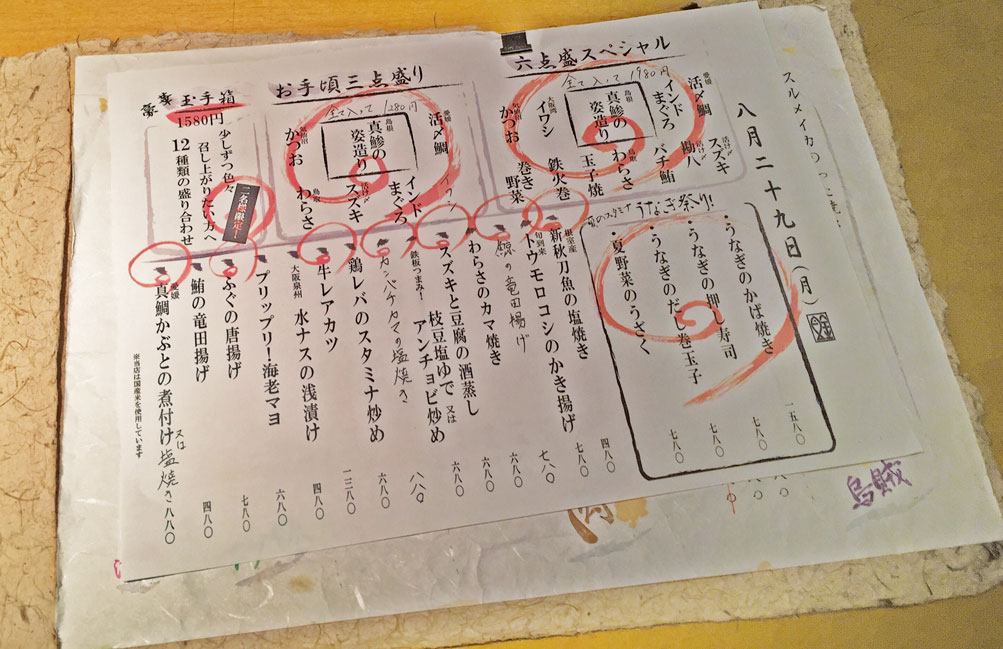 八月二十九日（月）
六点盛スペシャル
全て入って1980円
愛媛
活〆鯛
インド
まぐろ
島根
真鯵の
姿造り
大阪湾
イワシ
気仙沼
かつお
活〆
スズキ
活〆
勘八
バチ鮪
わらさ
玉子焼
鉄火巻
巻き
野菜
お手頃三点盛り
全て入って1280円
愛媛
活〆鯛
島根
真鯵の
姿造り
気仙沼
かつお
イワシ
インド
まぐろ
活〆
スズキ
島根
わらさ
豪華玉手箱
1580円
少しずつ色々
召し上がりたい方へ
12種類の盛り合わせ
二名様限定！
夏のスタミナ うなぎ祭り！
・うなぎのかば焼き 一五八〇
・うなぎの押し寿司 七八〇
・うなぎのだし巻玉子 七八〇
・夏野菜のうざく 七八〇
根室産
新秋刀魚の塩焼き 四八〇
旬到来
トウモロコシのかき揚げ 七八〇
鯨の竜田揚げ 七八〇
わらさのカマ焼き 六八〇
スズキと豆腐の酒蒸し 六八〇
鉄板つまみ！
枝豆塩ゆで 又は アンチョビ炒め 六八〇
カンパチカマの塩焼き 八八〇
鶏レバのスタミナ炒め 六八〇
牛レアカツ 一三八〇
大阪泉州
水ナスの浅漬け 四八〇
プリップリ！海老マヨ 六八〇
ふぐの唐揚げ 七八〇
鮪の竜田揚げ 四八〇
愛媛
真鯛かぶとの煮付け 又は 塩焼き 八八〇
※当店は国産米を使用しています
スルメイカ
烏賊